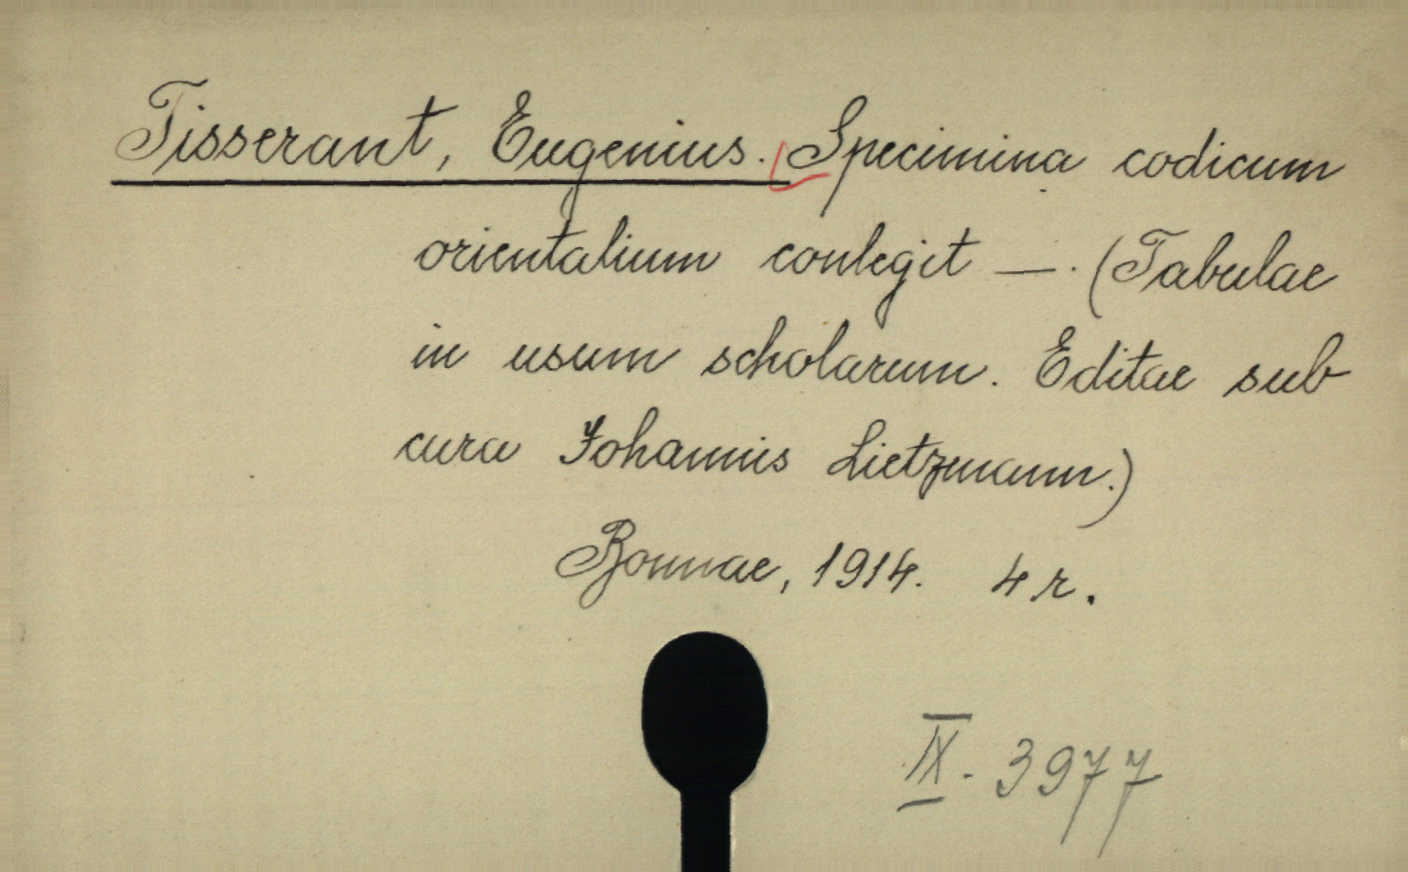 Tisserant, Eugenius. Specimina codicum
orientalium conlegit —. (Tabulae
in usum scholarum. Editae sub
cura Johannis Lietzmann.)
Bonnae, 1914. 4 r.
IX. 3977